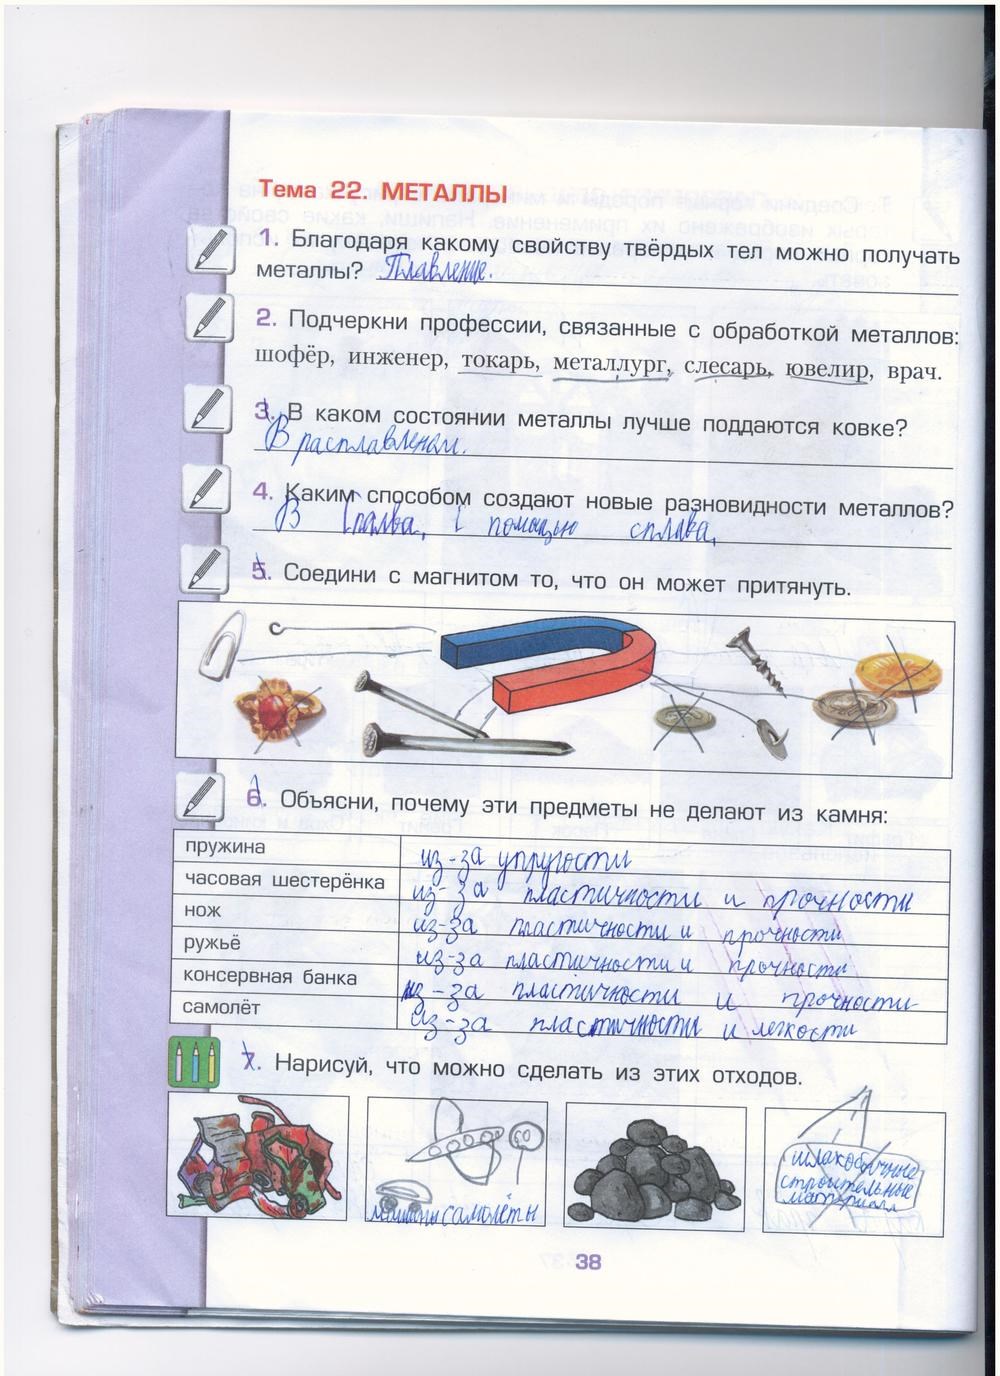 Тема 22. МЕТАЛЛЫ
1. Благодаря какому свойству твёрдых тел можно получать
металлы? Плавление.
2. Подчеркни профессии, связанные с обработкой металлов:
шофёр, инженер, токарь, металлург, слесарь, ювелир, врач.
3. В каком состоянии металлы лучше поддаются ковке?
В расплавленом.
4. Каким способом создают новые разновидности металлов?
В спалва, с помощью сплава,
5. Соедини с магнитом то, что он может притянуть.
6. Объясни, почему эти предметы не делают из камня:
пружина из-за упругости
часовая шестерёнка из-за пластичности и прочности
нож из-за пластичности и прочности
ружьё из-за пластичности и прочности
консервная банка из-за пластичности и прочности
самолёт из-за пластичности и легкости
7. Нарисуй, что можно сделать из этих отходов.
60
машины самолёты
шлакоблочные
строительные
материалл
38